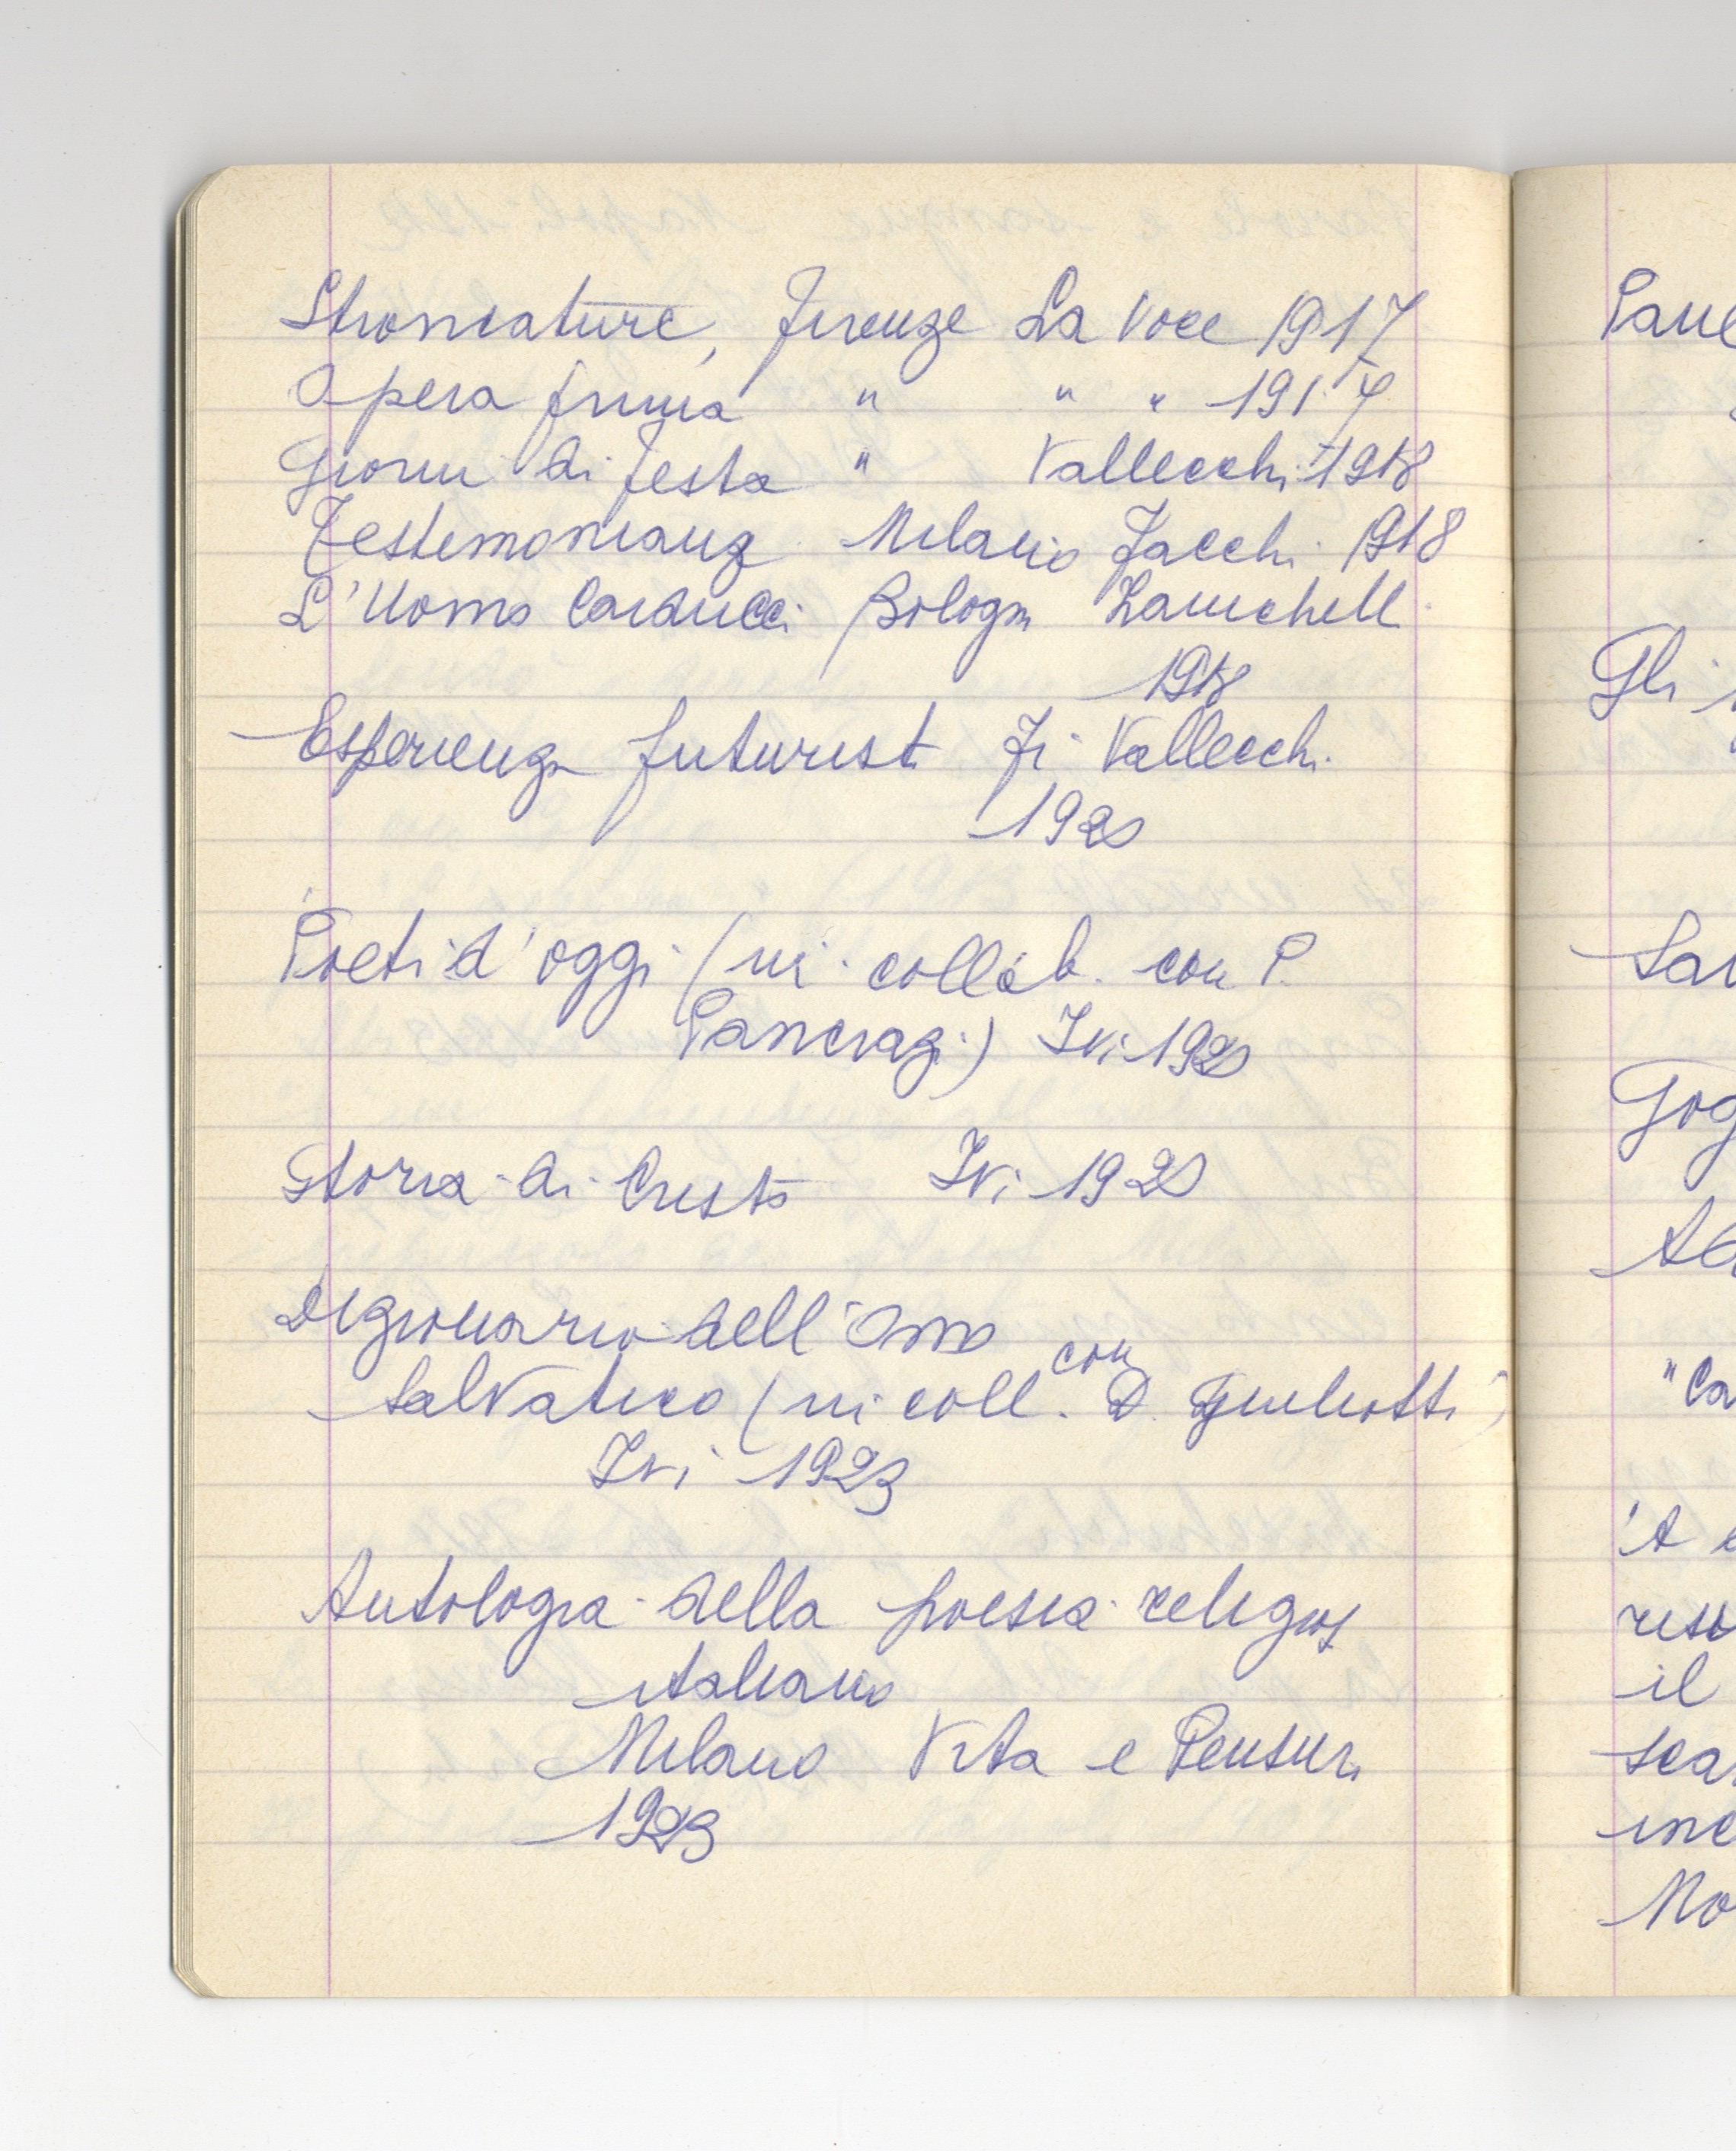 Stroncature, Firenze La Voce 1917
Opera prima " " " 1917
Giorni di festa " Vallecchi 1918
Testimonianz Milano Facchi 1918
L'Uomo Carducci Bologn Zanichell
1918
Esperienza futurist Fi Vallecchi
1920
Poeti d'oggi (in collab. con P.
Pancrazi) Ivi 1920
Storia di Cristo Ivi 1920
Dizionario dell'Omo
salvatico (in coll. con D. Giuliotti)
Ivi 1923
Antologia della poesia religios
italiana
Milano Vita e Pensier
1923
Gli
"Ca
il